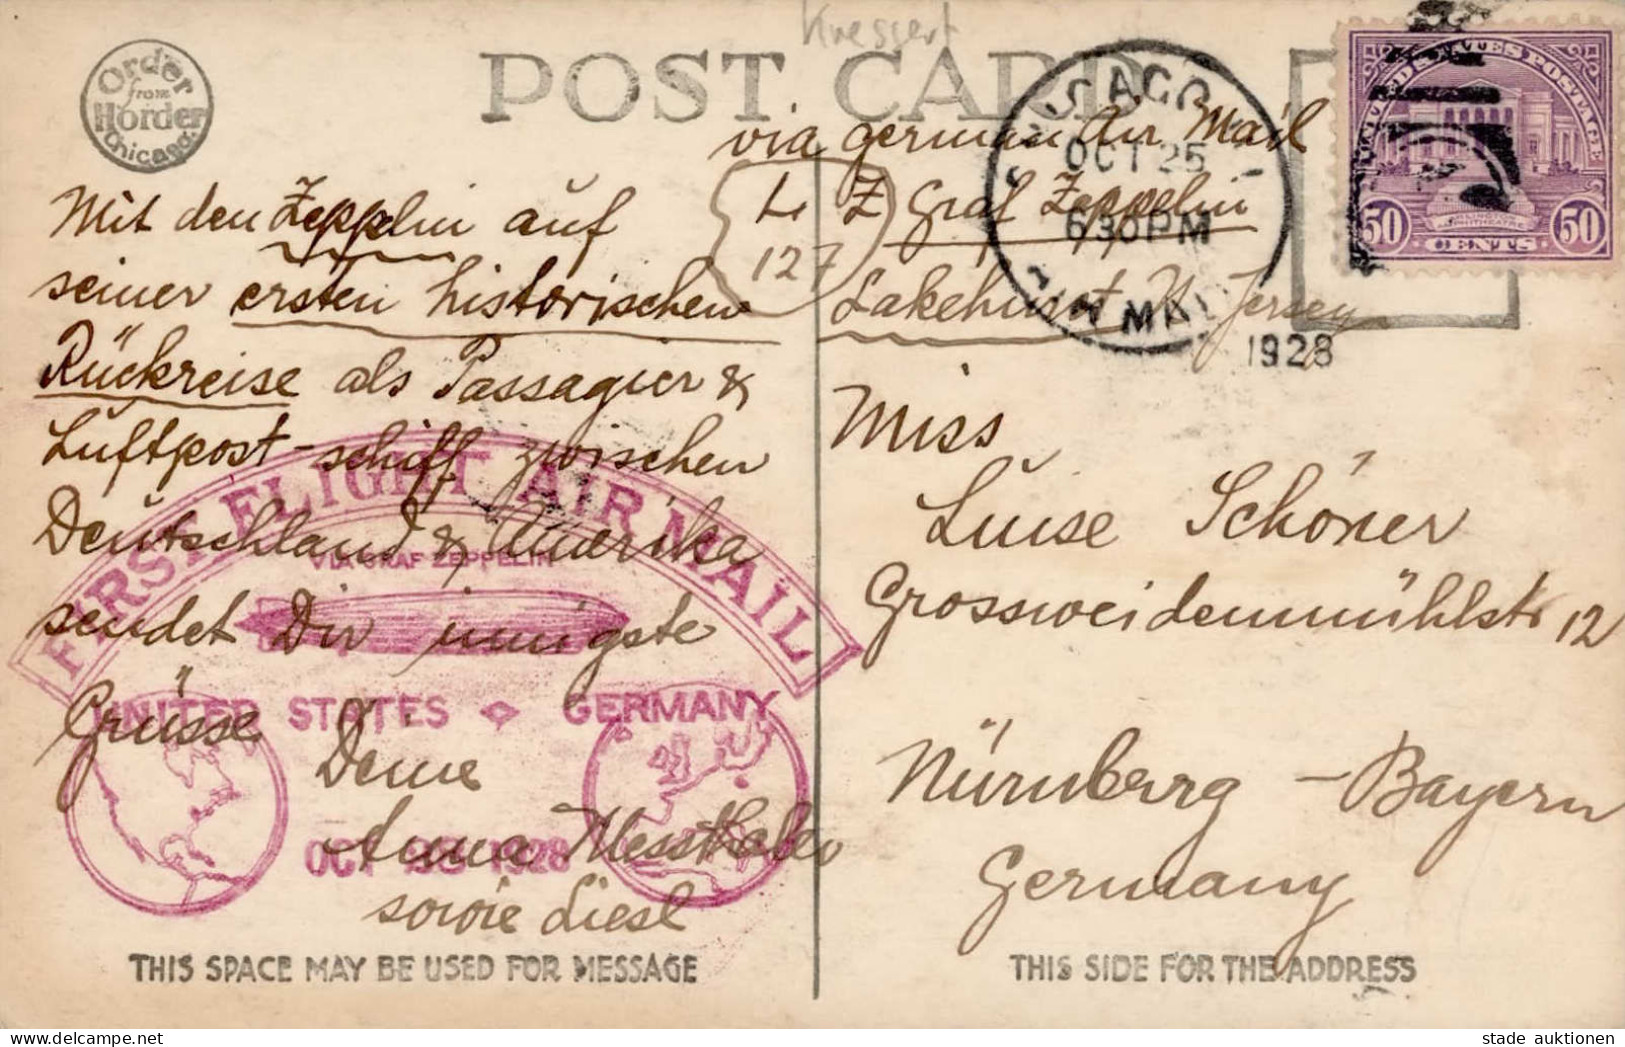 Kressert
Order
from
Horder
Chicago.
POST CARD
CHICAGO, ILL.
OCT 25
6 30 PM
AIR MAIL
1928
UNITED STATES POSTAGE
50 50
CENTS
via german Air Mail
L. Z. Graf Zeppelin
127
Lakehurst N. Jersey
Mit den Zeppelin auf
seiner ersten historischen
Rückreise als Passagier &
Luftpost-schiff zwischen
Deutschland & Amerika
sendet Dir innigste
Grüsse Deine
Anna Messthaler
sowie Liesl
FIRST FLIGHT AIR MAIL
VIA GRAF ZEPPELIN
UNITED STATES GERMANY
OCT 28 1928
Miss
Luise Schöner
Grossweidenmühlstr 12
Nürnberg – Bayern
Germany
THIS SPACE MAY BE USED FOR MESSAGE
THIS SIDE FOR THE ADDRESS
stade auktionen